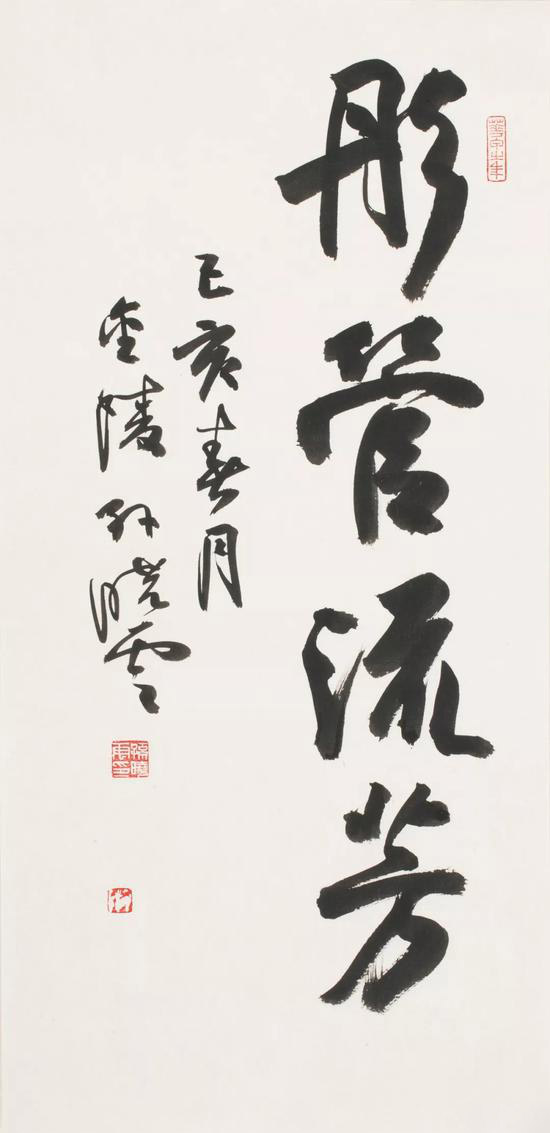 彤管流芳
己亥春月
金陵孙晓云